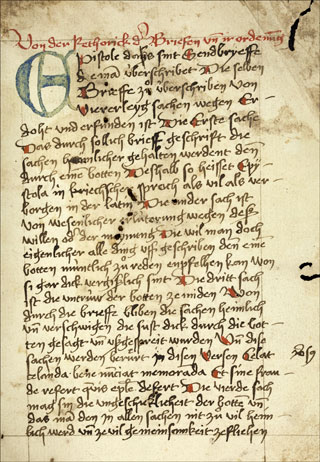 Von der Rethorick d' Briefen vn ir ordenung
Epistole das sint Sendbryeffe
die man überschribet Die selben
Brieffe zu überschriben von
viererleyg sachen wegen Er
docht und erfunden ist Die Erste sache
Das durch sollich brieff geschrifft die
sachen heymlicher gehalten werdent den
durch eine botten Deshalb so heisset Epi
stola in kriechscher sproch als vil als ver
borgen in der latin Die ander sach ist
von wesenlicher erlüterung wegen deß
willen oder der meinung Die wil man doch
eigenlicher alle ding uff geschriben den eine
botten muntlich zu reden enpfelhen kan von
si gar dick vergißlich sint Die dritt sach
ist die untruw der botten zemiden Won
durch die brieffe bliben die sachen heimlich
vn verschwigen die sust dick durch die bot
ten gesagt vn ußgespreit wurden Un dise
sachen werden berürt in disen versen Celat
celanda bene nunciat memoranda Et sine frau
de refert quis eple defert Die vierde sach
mag sin die ungeschicklicheit der botte vn
das man den in allen sachen nit zu vil heim
lich werd vn ze vil gemeinsamkeit zeflichen